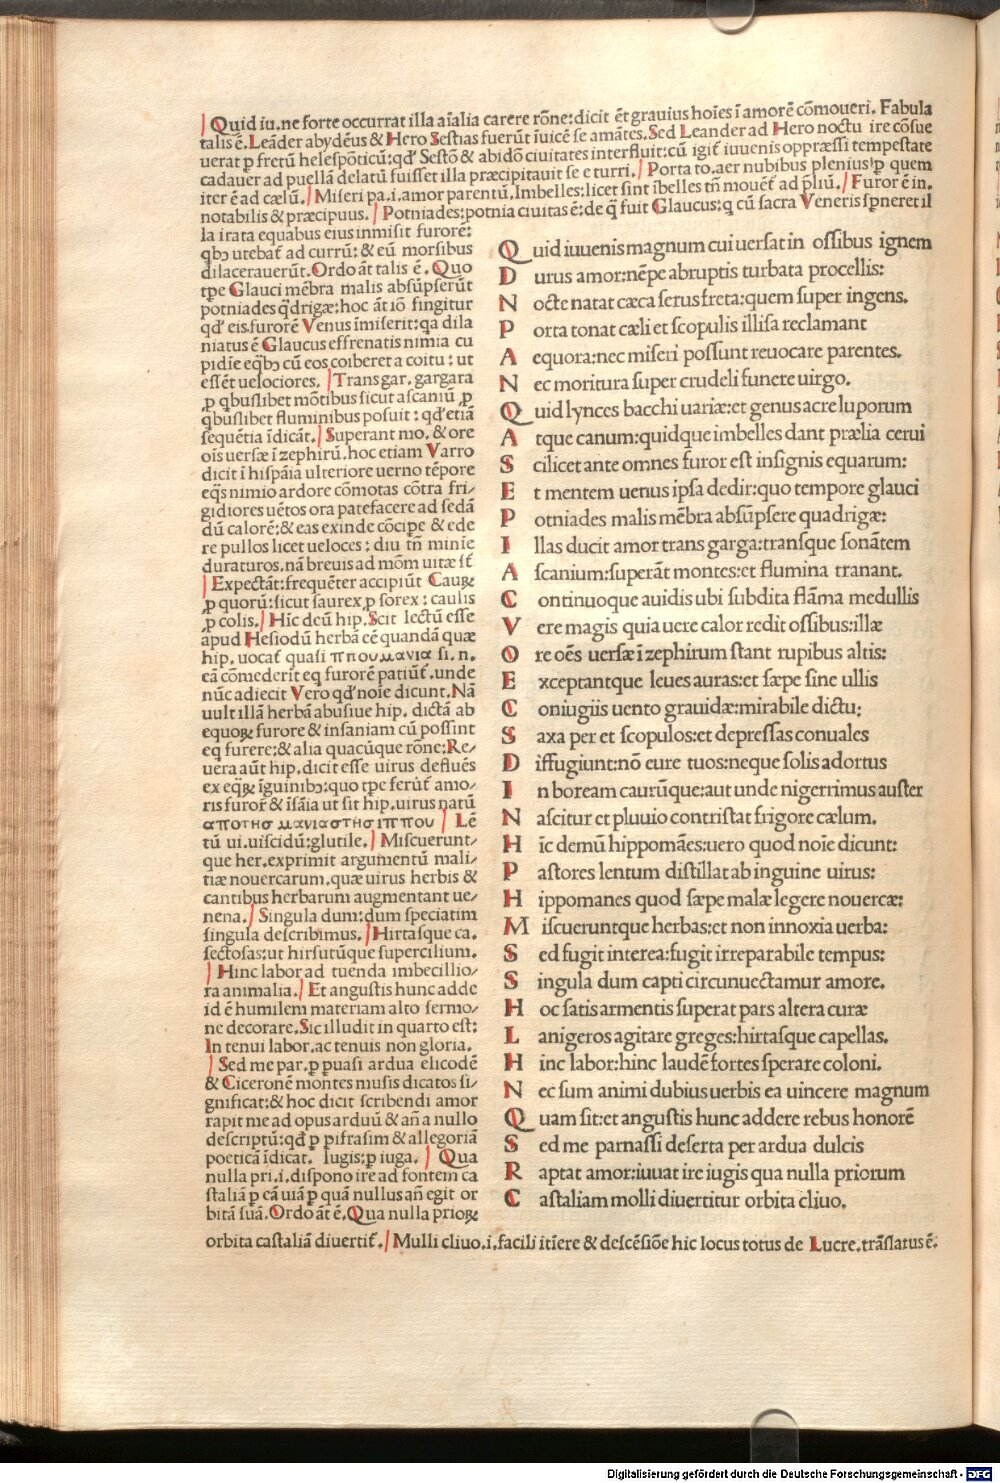 Quid iu.ne forte occurrat illa aīalia carere rōne:dicit ēt grauius hoīes ī amorē cōmoueri. Fabula
talis ē.Leāder abydēus & Hero Sestias fuerūt īuicē se amātes.Sed Leander ad Hero noctu ire cōsue
uerat ꝑ fretū helespōticū:qđ Sestō & abidō ciuitates interfluit:cū igiť iuuenis oppræssi tempestate
cadauer ad puellā delatū fuisset illa præcipitauit se e turri. Porta to.aer nubibus plenius ꝑ quem
iter ē ad cælū. Miseri pa.i.amor parentū.Imbelles:licet sint ībelles tñ mouēť ad p̄liū. Furor ē in.
notabilis & præcipuus. Potniades:potnia ciuitas ē:de q̄ fuit Glaucus:q cū sacra Veneris sp̄neret il
la irata equabus eius inmisit furorē:
qbꝫ utebať ad currū:& eū morsibus
dilacerauerūt.Ordo āt talis ē.Quo
tpe Glauci mēbra malis absūpserūt
potniades q̄drigæ:hoc āt iō fingitur
qđ eis furorē Venus īmiserit:qa dila
niatus ē Glaucus effrenatis nimia cu
pidīe eqbꝫ cū eos coiberet a coitu:ut
essēt uelociores. Trans gar.gargara
ꝓ qbuslibet mōtibus sicut ascaniū ꝓ
qbuslibet fluminibus posuit:qđ etiā
sequētia īdicāt. Superant mo.& ore
ois uersæ ī zephirū.hoc etiam Varro
dicit ī hispāia ulteriore uerno tēpore
eq̄s nimio ardore cōmotas cōtra fri/
gidiores uētos ora patefacere ad sedā
dū calorē:& eas exinde cōcipe & ede
re pullos licet ueloces:diu tñ minīe
duraturos.nā breuis ad mōm uitæ sť
Expectāt:frequēter accipiūt Cauꝝ
ꝓ quorū:sicut saurex ꝓ sorex:caulis
ꝓ colis. Hīc deū hip.Scit lectū esse
apud Hesiodū herbā eē quandā quæ
hip.uocať quasi ππουμανια si.n.
eā comederīt eq furorē patiūť.unde
nūc adiecit Vero qđ noīe dicunt.Nā
uult illā herbā abusiue hip.dictā ab
equoꝝ furore & insaniam cū possint
eq furere:& alia quacūque rōne:Re/
uera aūt hip.dicit esse uirus defluēs
ex eqꝝ īguinibꝫ:quo tpe ferūť amo/
ris furoř & īsāia ut sit hip.uirus natū
αποτησ μανιαστησιππου Lē
tū ui.uiscidū:glutile. Miscuerunt/
que her.exprimit argumentū mali/
tiæ nouercarum.quæ uirus herbis &
cantibus herbarum augmentant ue/
nena. Singula dum:dum speciatim
singula describimus. Hirtasque ca.
sectosas:ut hirsutūque supercilium.
Hinc labor ad tuenda imbecillio/
ra animalia. Et angustis hunc adde
id ē humilem materiam alto sermo/
ne decorare.Sic illudit in quarto est:
In tenui labor.ac tenuis non gloria.
Sed me par.ꝑ puasi ardua elicodē
& Ciceronē montes musis dicatos si/
gnificat:& hoc dicit scribendi amor
rapit me ad opus arduū & añ a nullo
descriptū:qđ ꝑ pifrasim & allegoriā
poeticā īdicat. Iugis:ꝑ iuga. Qua
nulla pri.i.dispono ire ad fontem ca
staliā ꝑ eā uiā ꝑ quā nullus añ egit or
bitā suā.Ordo āt ē.Qua nulla prioꝝ
orbita castaliā diuertiť. Mulli cliuo.i.facili itīere & descēsiōe hic locus totus de Lucre.trāslatus ē:
Quid iuuenis magnum cui uersat in ossibus ignem
Durus amor:nēpe abruptis turbata procellis:
Nocte natat cæca serus freta:quem super ingens.
Porta tonat cæli et scopulis illisa reclamant
Aequora:nec miseri possunt reuocare parentes.
Nec moritura super crudeli funere uirgo.
Quid lynces bacchi uariæ:et genus acre luporum
Atque canum:quidque imbelles dant prælia cerui
Scilicet ante omnes furor est insignis equarum:
Et mentem uenus ipsa dedir:quo tempore glauci
Potniades malis mēbra absūpsere quadrigæ:
Illas ducit amor trans garga:transque sonātem
Ascanium:superāt montes:et flumina tranant.
Continuoque auidis ubi subdita flāma medullis
Vere magis quia uere calor redit ossibus:illæ
Ore oēs uersæ ī zephirum stant rupibus altis:
Exceptantque leues auras:et sæpe sine ullis
Coniugiis uento grauidæ:mirabile dictu:
Saxa per et scopulos:et depressas conuales
Diffugiunt:nō eure tuos:neque solis adortus
In boream caurūque:aut unde nigerrimus auster
Nascitur et pluuio contristat frigore cælum.
Hīc demū hippomāes:uero quod noīe dicunt:
Pastores lentum distillat ab inguine uirus:
Hippomanes quod sæpe malæ legere nouercæ:
Miscueruntque herbas:et non innoxia uerba:
Sed fugit interea:fugit irreparabile tempus:
Singula dum capti circunuectamur amore.
Hoc satis armentis superat pars altera curæ
Lanigeros agitare greges:hirtasque capellas.
Hinc labor:hinc laudē fortes sperare coloni.
Nec sum animi dubius uerbis ea uincere magnum
Quam sit:et angustis hunc addere rebus honorē
Sed me parnassi deserta per ardua dulcis
Raptat amor:iuuat ire iugis qua nulla priorum
Castaliam molli diuertitur orbita cliuo.
Digitalisierung gefördert durch die Deutsche Forschungsgemeinschaft - DFG